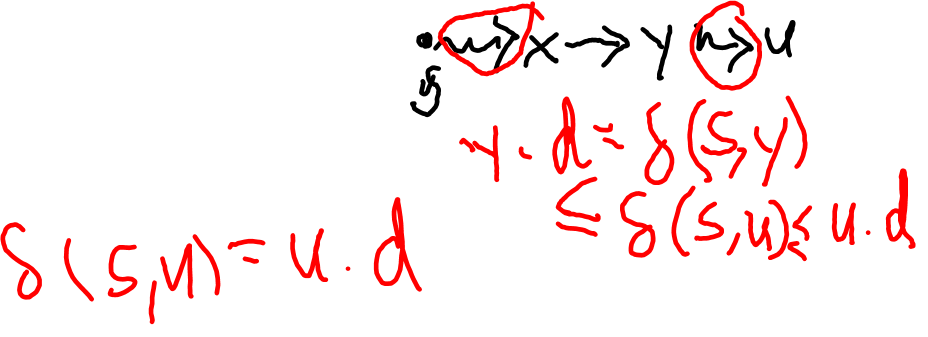 s ⇝ x → y ⇝ u
y.d = δ(s,y)
≤ δ(s,u) ≤ u.d
δ(s,u) = u.d